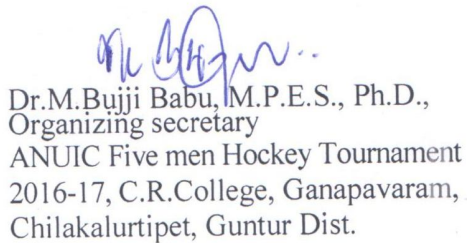 Dr.M.Bujji Babu, M.P.E.S., Ph.D.,
Organizing secretary
ANUIC Five men Hockey Tournament
2016-17, C.R.College, Ganapavaram,
Chilakalurtipet, Guntur Dist.